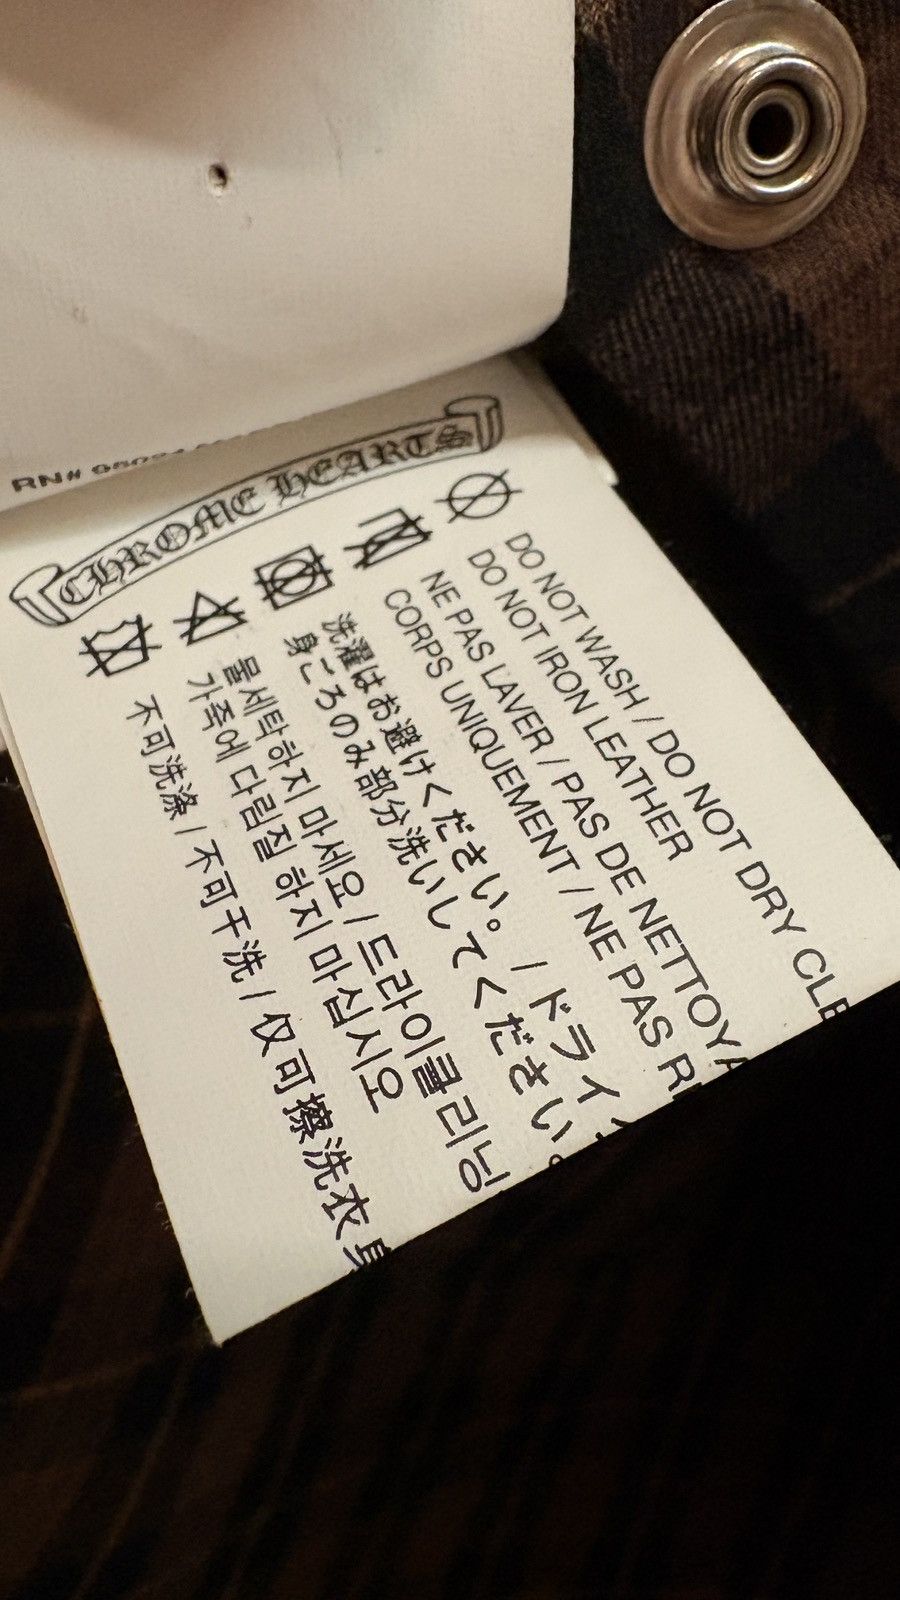 RN#
CHROME HEARTS
DO NOT WASH / DO NOT DRY
DO NOT IRON LEATHER
NE PAS LAVER / PAS DE
CORPS UNIQUEMENT / NE PAS
洗濯はお避けください。 / ドライ
身ごろのみ部分洗いしてください。
물세탁하지 마세요 / 드라이클리닝
가죽에 다림질 하지 마십시오
不可洗涤 / 不可干洗 / 仅可擦洗衣身